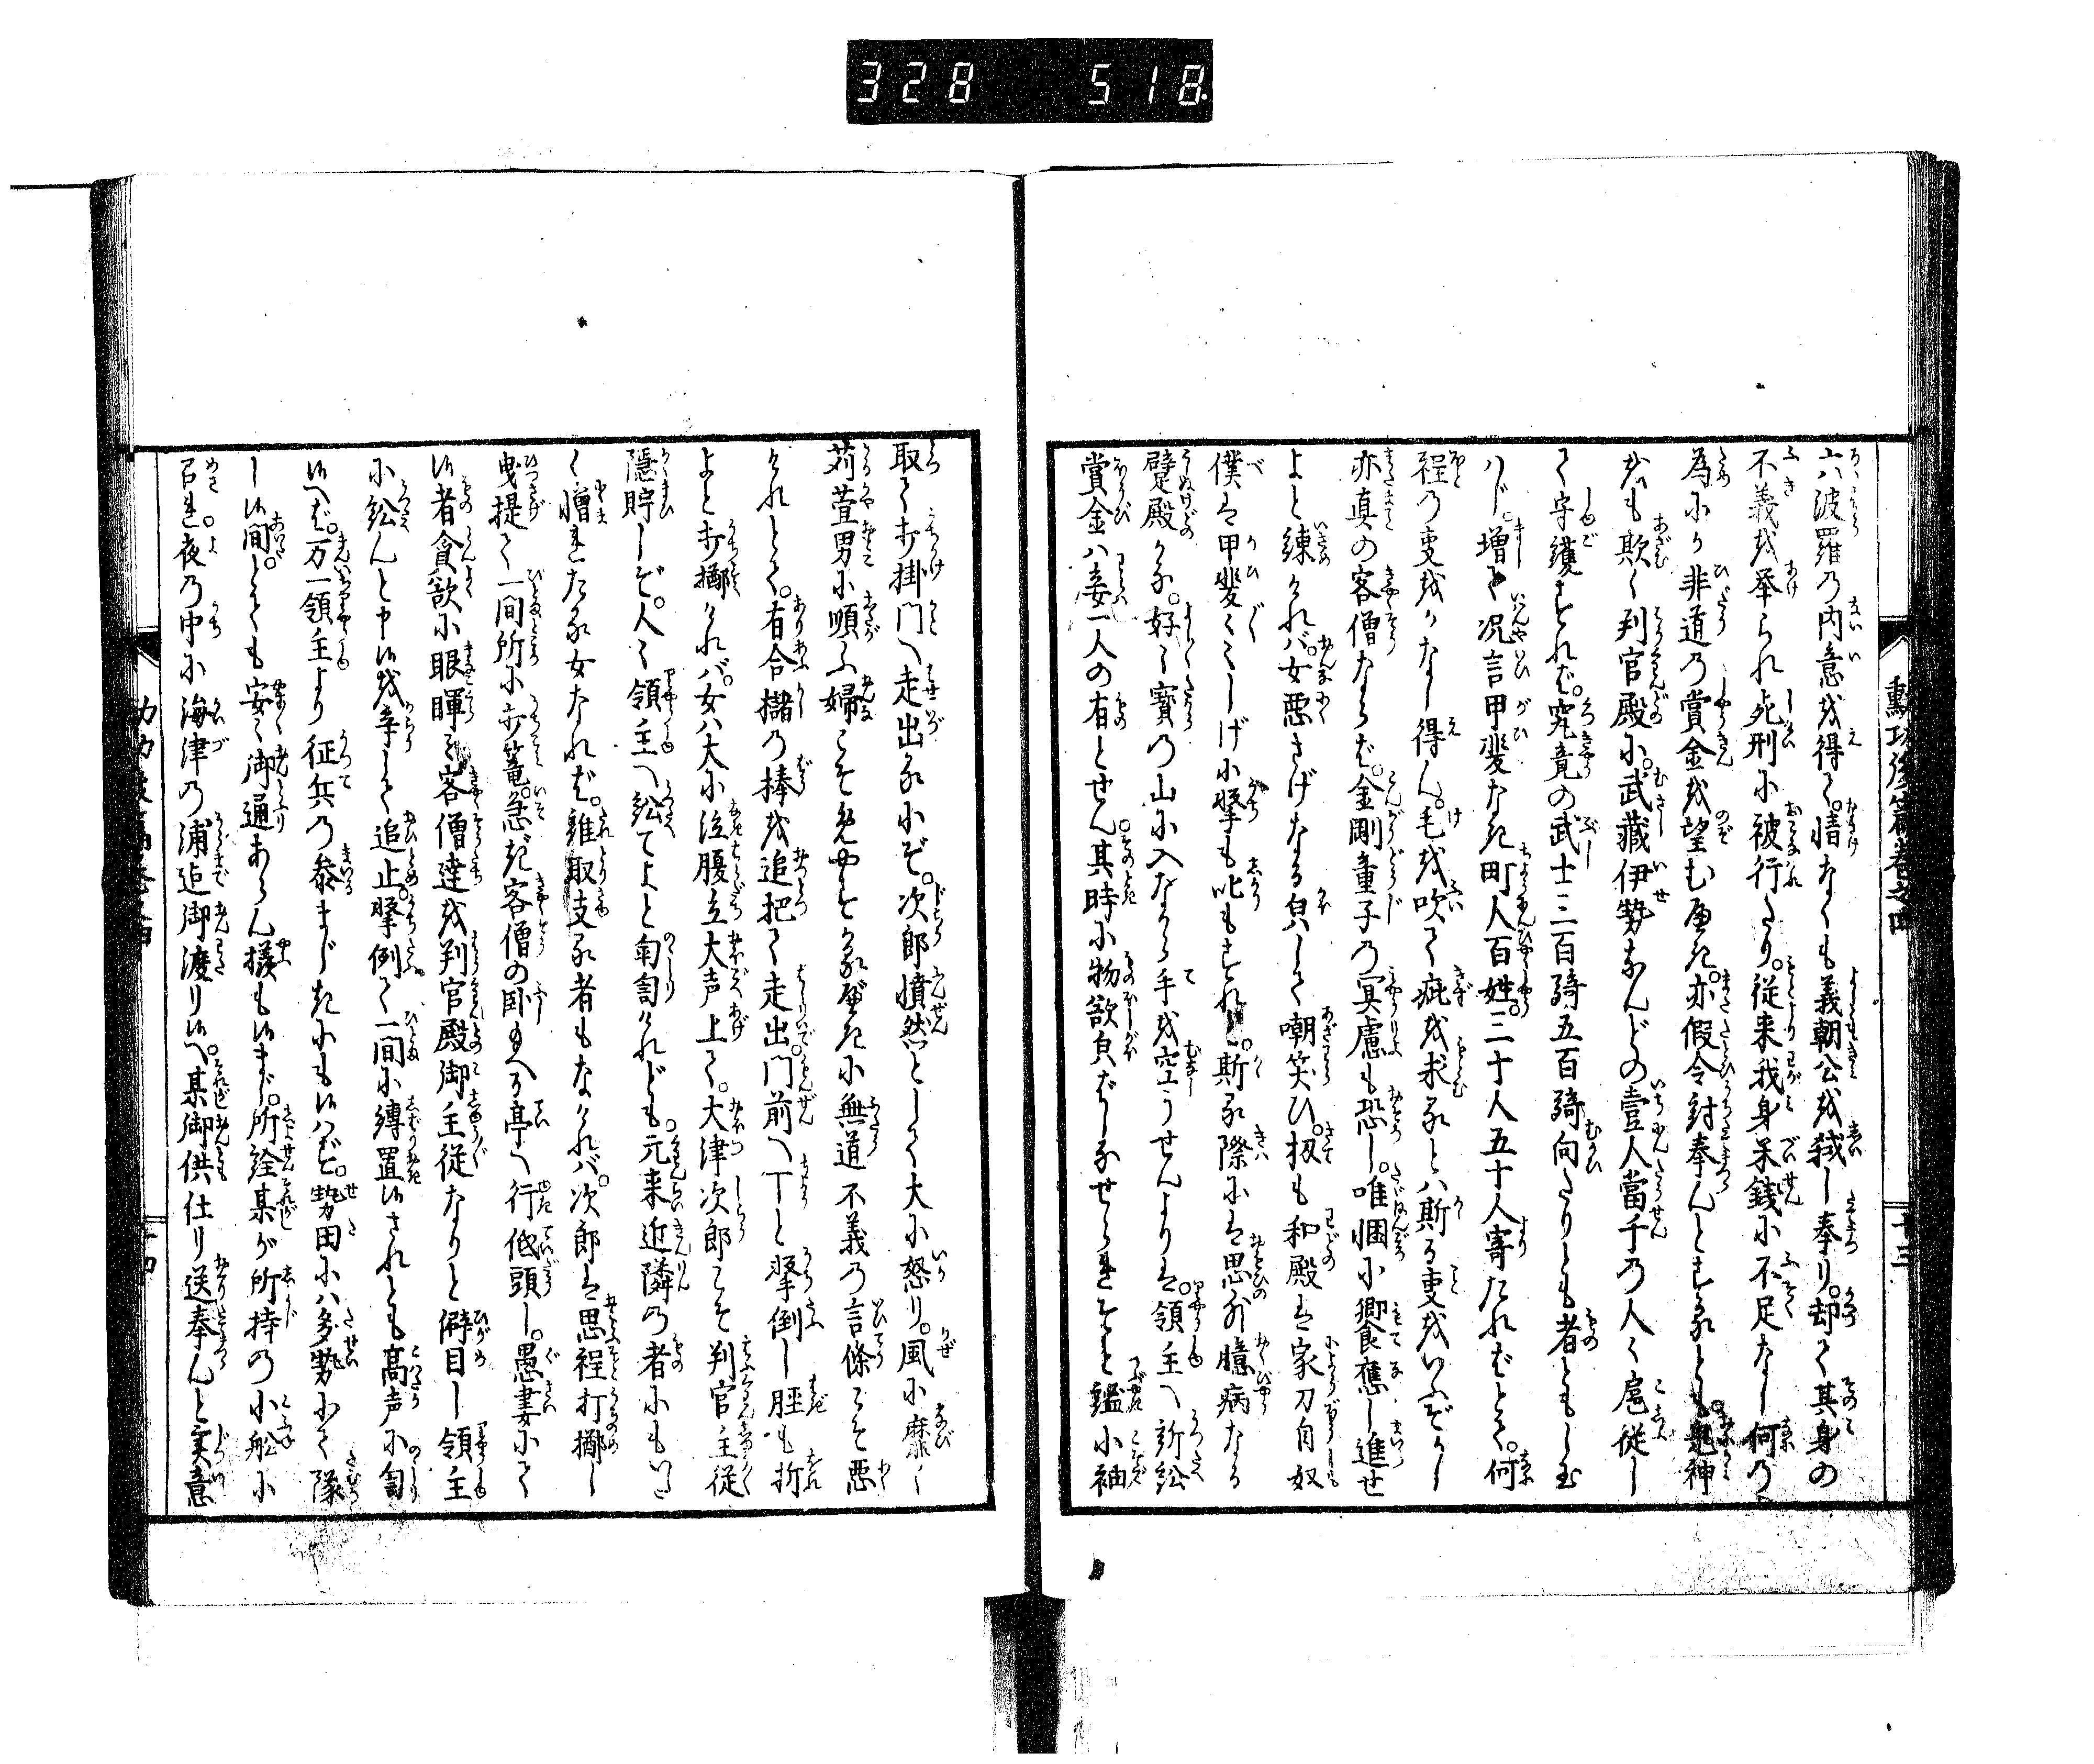 328 518
勲功後篇巻之四
六波羅の内意を得て。情なくも義朝公を弑し奉り。却て其身の
不義を挙られ死刑に被行たり。従来我身米銭に不足なし何の
為にか非道の賞金を望むべき。亦假令討奉んとするとも。鬼神
をも欺く判官殿に。武藏伊勢なんどの壹人當千の人々扈従し
て守護すれば。究竟の武士三百騎五百騎向たりとも者ともし玉
はじ。増て况言甲斐なき町人百姓。三十人五十人寄たればとて。何
程の叓をかなし得ん。毛を吹て疵を求るとは斯る叓をいふぞかし
亦真の客僧ならば。金剛童子の冥慮も恐し。唯悃に饗應し進せ
よと練ければ。女悪さげなる皃して嘲笑ひ。扨も和殿は家刀自奴
僕は甲斐々々しげに撃も叱もすれ。斯る際には思外臆病なる
躄殿かな。好々寶の山に入ながら手を空うせんよりは。領主へ訴訟
賞金は妾一人の有とせん。其時に物欲皃ばしなせられそと鑑小袖
取て打掛門へ走出るにぞ。次郎憤然として大に怒り。風に靡く
苅萱男に順ふ婦こそ免もすべきに無道不義の言條こそ悪
けれとて。有合儲の棒を追把て走出。門前へ丁と撃倒し脛も折
よと打擲ければ。女は大に泣腹立大声上て。大津次郎こそ判官主従
隠貯しぞ。人々領主へ訟てよと訇訇けれども。元来近隣の者にもいたく
憎まれたる女なれば。雖取支る者もなければ。次郎は思程打擲し
曳提て一間所に打篭。急ぎ客僧の臥もへる亭へ行低頭し。愚妻にて
候者貪欲に眼暉て客僧達を判官殿御主従なりと僻目し領主
に訟んと申候を幸して追止。撃倒て一間に縛置候されとも高声に訇
候へば。万一領主より征兵の参まじきにも候はず。勢田には多勢にて隊
し候間。とても安く御通あらん様も候まじ。所詮某が所持の小舩に
召れ。夜の中に海津の浦迄御渡り候へ。某御供仕り送奉んと実意